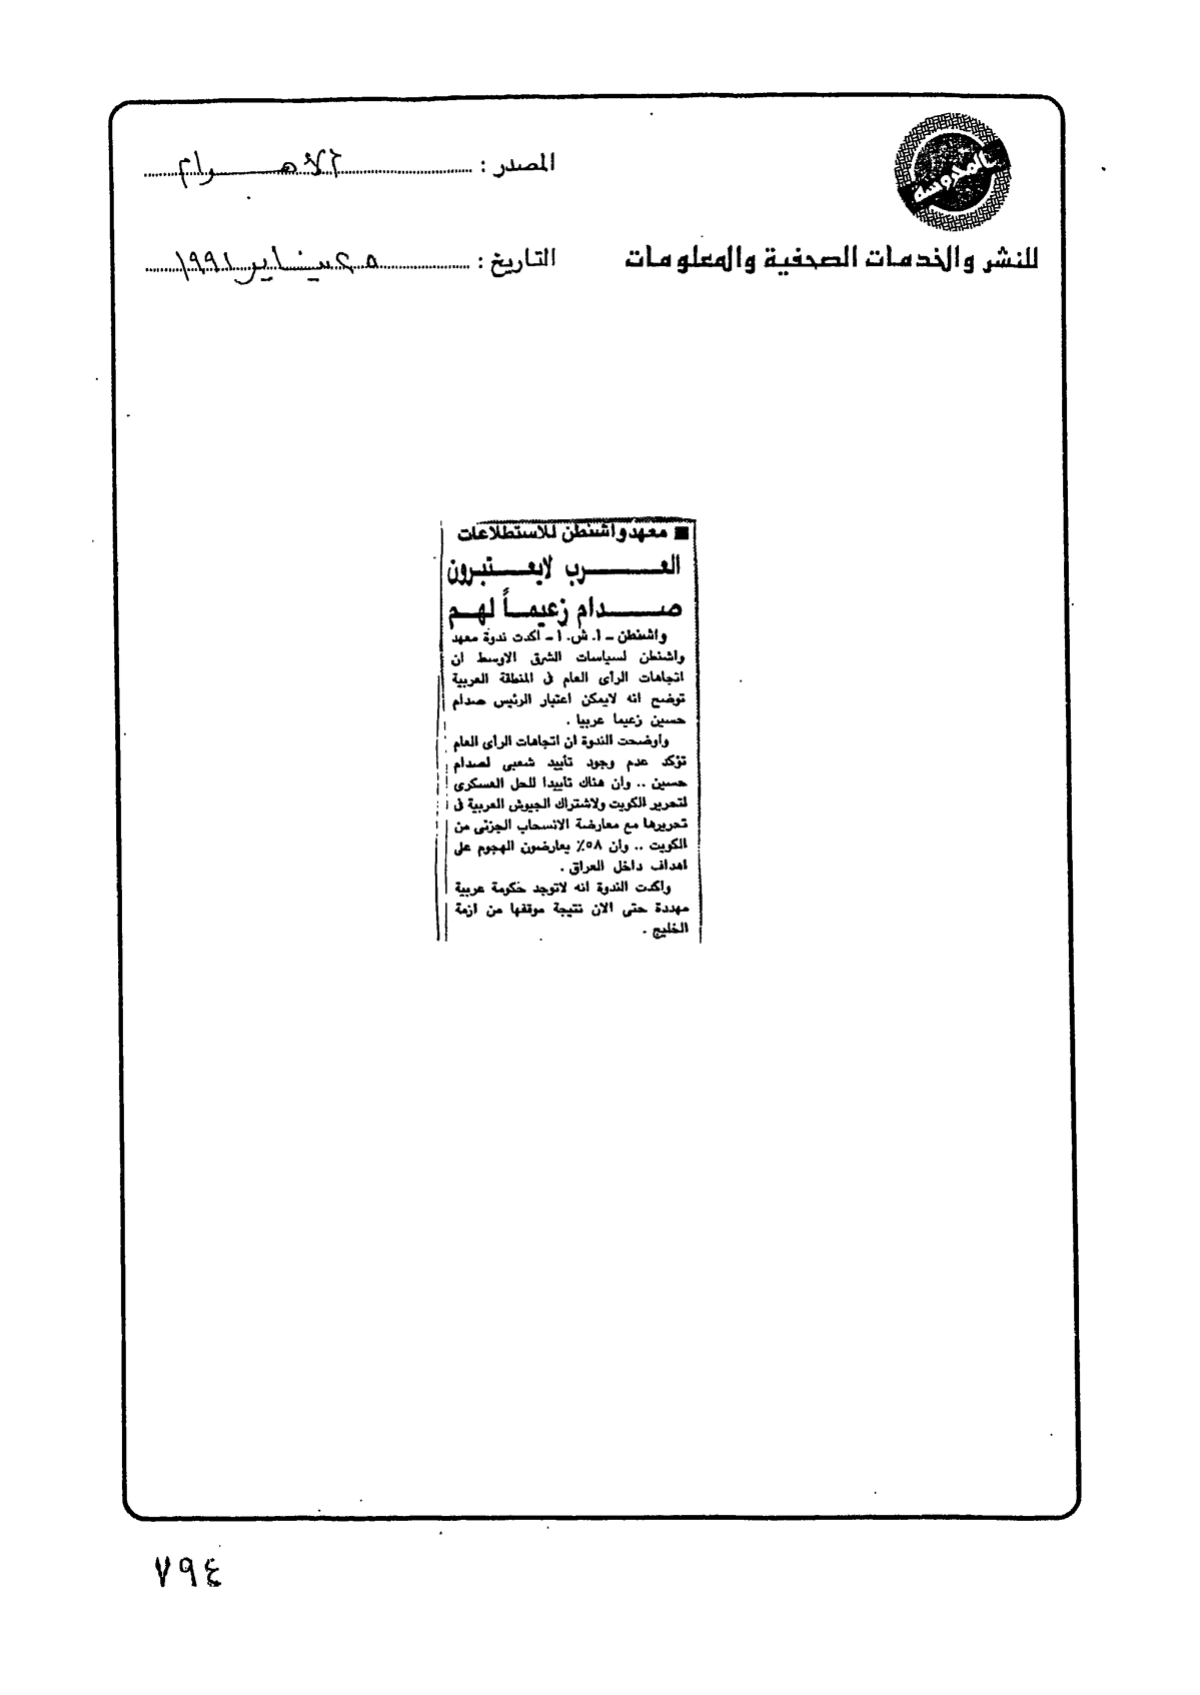 المحروسة
المصدر : الأهرام
للنشر والخدمات الصحفية والمعلومات
التاريخ : ٢٥ يناير ١٩٩١
■ معهد واشنطن للاستطلاعات
العرب لايعتبرون
صدام زعيماً لهم
واشنطن – أ. ش. أ – أكدت ندوة معهد
واشنطن لسياسات الشرق الاوسط ان
اتجاهات الرأى العام فى المنطقة العربية
توضح انه لايمكن اعتبار الرئيس صدام
حسين زعيما عربيا .
وأوضحت الندوة ان اتجاهات الرأى العام
تؤكد عدم وجود تأييد شعبى لصدام
حسين .. وان هناك تأييدا للحل العسكرى
لتحرير الكويت ولاشتراك الجيوش العربية فى
تحريرها مع معارضة الانسحاب الجزئى من
الكويت .. وان ٥٨٪ يعارضون الهجوم على
اهداف داخل العراق .
واكدت الندوة انه لاتوجد حكومة عربية
مهددة حتى الان نتيجة موقفها من ازمة
الخليج .
٧٩٤